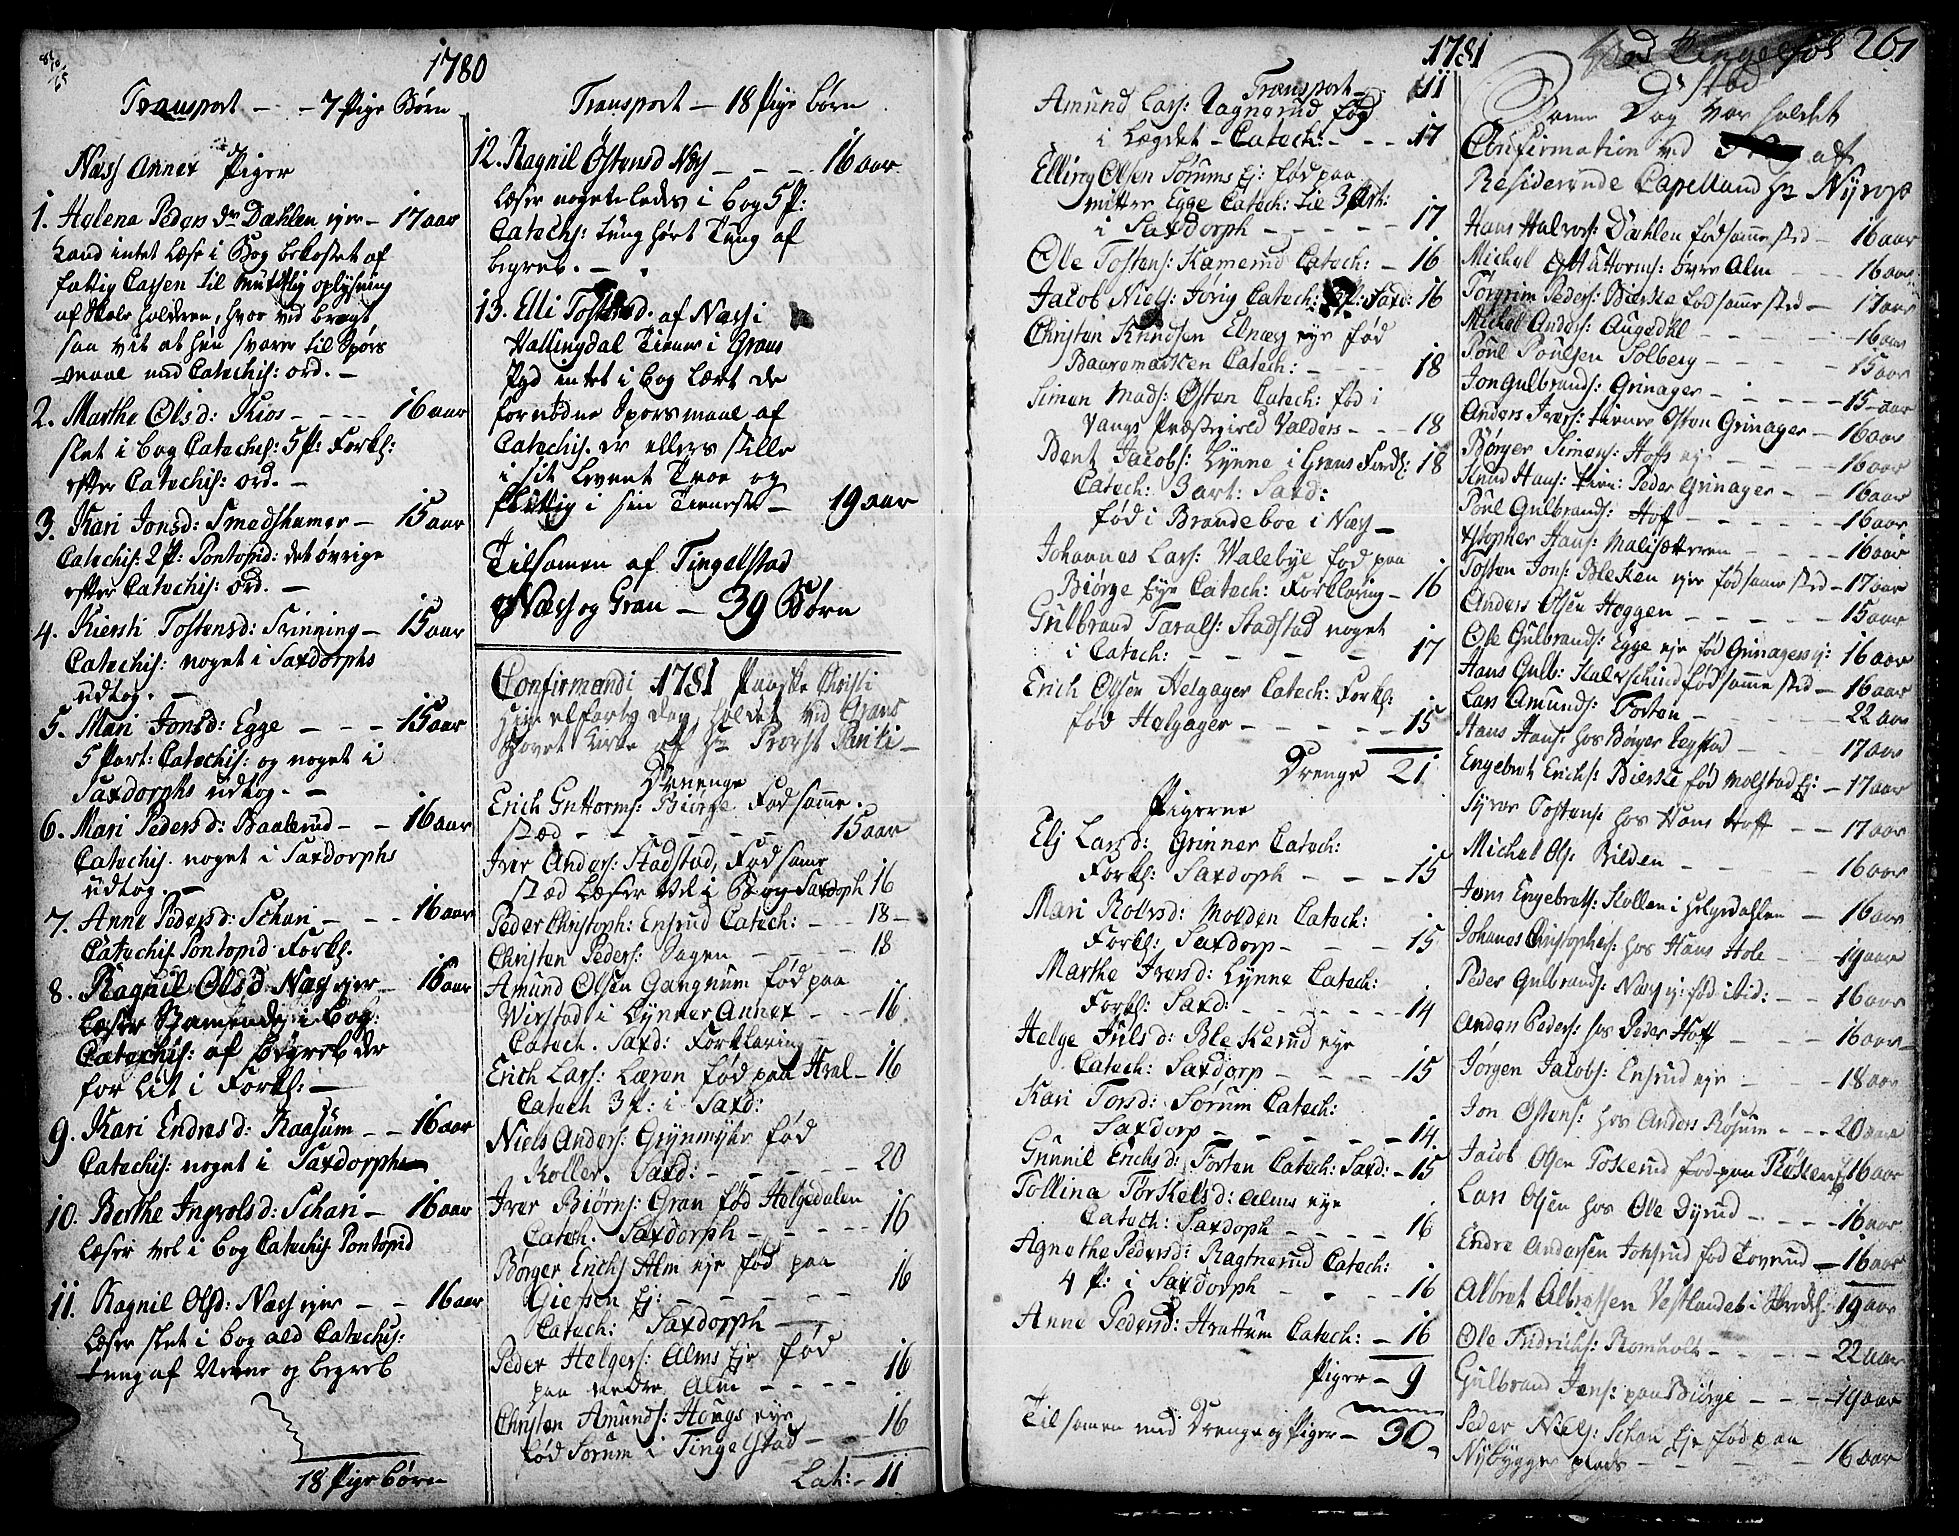 1780
Transport - - 7 Pige Børn
Næss Annex Piger
1. Helena Peders Dr Dæhlen ejer - 17 aar
Kand intet læse i Bog bekostet af
fattig Cassen til nuttig oplysning
af Skole holderen, hvor ved bragt
saa vit at hun svarer til Spørs
maal ud Catechis: ord. -
2. Marthe Olsd: Kios - - - - 16 aar
slet i bog Catechis: 5 P: Forkl:
efter Catechis: ord. -
3. Kari Jonsd: Smedshamer - 15 aar
Catechis: 2 P: Pontopid: det øvrige
efter Catechis: ord. -
4. Kiersti Tostensd: Trinning - 15 aar
Catechis: noget i Saxdorphs
udtog. -
5. Mari Jonsd: Egge - - - 15 aar
5 Part: Catechis: og noget i
Saxdorphs udtog. -
6. Mari Pedersd: Baalerud - - 16 aar
Catechis. noget i Saxdorphs
udtog. -
7. Anne Pedersd: Schari - - - 16 aar
Catechis Pontopid Forkl.
8. Ragnil Olsd Næss ejer - 15 aar
læser Stamende i bog:
Catechis: af begreb der
for lit i Forkl: -
9. Kari Endresd: Raasum - - 16 aar
Catechis: noget i Saxdorphs
10. Berthe Ingvolsd: Schari - 16 aar
læser vel i bog Catechis Pontopid
11. Ragnil Olsd: Næss ejer - - 16 aar
læser slet i bog ald Catechis:
tung af Nemme og begreb
18 Pige børn
Transport - 18 Pige børn
12. Ragnil Østensd Næss - - - - 16 aar
læser nogeteledes i bog 5 P:
Catechis: tung hørt Tung af
begreb. -
13. Elli Tostensd. af Næss i
Hallingdal Tiener i Grans
Pgd intet i bog lært de
fornødne Spørsmaal af
Catechis. er ellers stille
i sit levnet Troe og
flittig i sin Tieneste - 19 aar
Tilsamen af Tingelstad
Næss og Gran - 39 Børn
Confirmandi 1781 Paaske Christi
Himelfarts dag, holdet ved Grans
Hovet Kirke af Hr Provst
Drenge
Erich Guttorms: Biørge Fød samme
stæd - - - - - - 15 aar
Iver Anders: Stadstad, Fød same
stæd læser vel i Bog Saxdoph 16
Peder Christoph: Ensrud Catech: - - 18 -
Christen Peders: Sogen - - - - 18
Amund Olsen Gangnum fød paa
Wirstad i Lynner Annex - - - 16
Catech. Saxd: Forklaring -
Erich Lars: Læren fød paa Hval - 16
Catech 3 P: i Saxd:
Niels Anders: Grynmyhr fød
Koller. Saxd: - - - - 20
Iver Biørns: Gran fød Helgedalen
Catech. Saxdorph - - - - - 16
Børger Erichs Alm eje fød paa
Giefsen Ej: - - - - - - 16
Catech: Saxdorph -
Peder Helgers: Alms Eje fød
paa nedre Alm - - - - 16
Christen Amunds: Hougs eje
fød Sørum i Tingelstad - 16
Lat: - 11
1781
Transport - 11
Amund Lars: Ragnerud fød
i Legdet - Catech: - - - 17
Elling Olsen Sørums Ej: fød paa
mitter Egge Catech: til 3 Part:
i Saxdorph - - - - - 17
Ole Tostens: Kamerud Catech: - 16
Jacob Niels: Jørig Catech: P: Saxd: 16
Christen Knudsen Elnæs eje fød
Baaremarken Catech: - - - - 18
Simen Mads: Østen Catech: fød i
Vangs Præstegield Valders - - - 18
Bent Jacobs: Lynne i Grans Forkl: 18
Catech: 3 art: Saxd:
fød i Brandeboe i Næss -
Johannes Lars: Walebye fød paa
Biørge Eye Catech: Forklaring - 16
Gulbrand Tarals: Stadstad noget
i Catech: - - - - - 17
Erich Olsen Helgager Catech: Forkl:
fød Helgager - - - - - - 15
Drenge 21.
Pigerne
Elj Larsd: Grinner Catech:
Forkl: Saxdoph - - - - 15
Mari Rolvsd: Molden Catech:
Forkl: Saxdorp - - - - 15
Marthe Iversd: Lynne Catech:
Forkl: Saxd: - - - - - - - 14
Helge Juls d: Blekerud eje
Catech: Saxdorp - - - - - 15
Kari Torsd: Sørum Catech:
Saxdorp - - - - - - 14.
Gunnil Erichsd: Torten Catech: Saxd: - 15
Tollina Torkelsd: Alms eje
Catech: Saxdoph - - - - - 16
Agnethe Pedersd: Ragtnerud Catech:
4 P: i Saxdorph - - - - 16
Anne Pedersd: Hvattum Catech: - 16
Piger - 9
Tilsamen med Drenge og Piger - 30.
261
Same Dag var holdet
Confirmation ved af
Residerende Capelland Hr Nyrop
Hans Halvors: Dæhlen fød samme sted - 16 aar
Michel Guttorms: øvre Alm - - - 16 aar
Torgrim Peders: Bierke fød samme sted - 17 aar
Michel Anders: Augedhl - - - - - 16 aar
Poul Poulsen Solberg - - - - - 15 aar
Jon Gulbrands: Grinager - - - - - 15 - aar
Anders Ivers: tiener Østen Grinager - 16 aar
Børger Simens: Hoffs ej - - - - 16 aar
Knud Hans: tien: Peder Grinager - - 16 aar
Poul Gulbrands: Hof - - - - - 16 aar
Xstopher Hans: Malisætteren - - - - 16 aar
Tosten Jons: Bleken ejer fød same sted - 17 aar
Anders Olsen Heggen - - - - - 15 aar
Ole Gulbrands: Egge eje fød Grinagers ej: 16 aar
Hans Gulb: Kalvschind fød samme sted - 16 aar
Lars Amunds: Torten - - - - - - 22 aar
Hans Hans: hos Børger Legstad - - - 17 aar
Engebret Erichs: Bierke fød Molstad Ej: - 17 aar
Syver Tostens: hos Hans Hoff - - 17 aar
Michel Ols: Bilden - - - - 16 aar
Jens Engebrets: Kollen i Helgedahlen - 16 aar
Johanes Christophers: hos Hans Hole - - 19 aar
Peder Gulbrands: Næss ej: fød ibid: - - 16 aar
Anders Peders: hos Peder Hoff - - - 16 aar
Jørgen Jacobs: Ensrud eje - - - 18 aar
Jon Østens: hos Anders Røsum - - - 20 aar
Jacob Olsen Tokerud fød paa Røken Ej 16 aar
Lars Olsen hos Ole Dyrud - - - - 16 aar
Endre Andersen Johsrud fød Lovrud - 16 aar
Albret Albretsen Vestlandet i 19 aar
Ole Fridrichs: Romholt - - - - - 22 aar
Gulbrand Jens: paa Biørge - - - 19 aar
Peder Niels: Schari Eje fød paa
Nybygger plads - - - - 16 aar